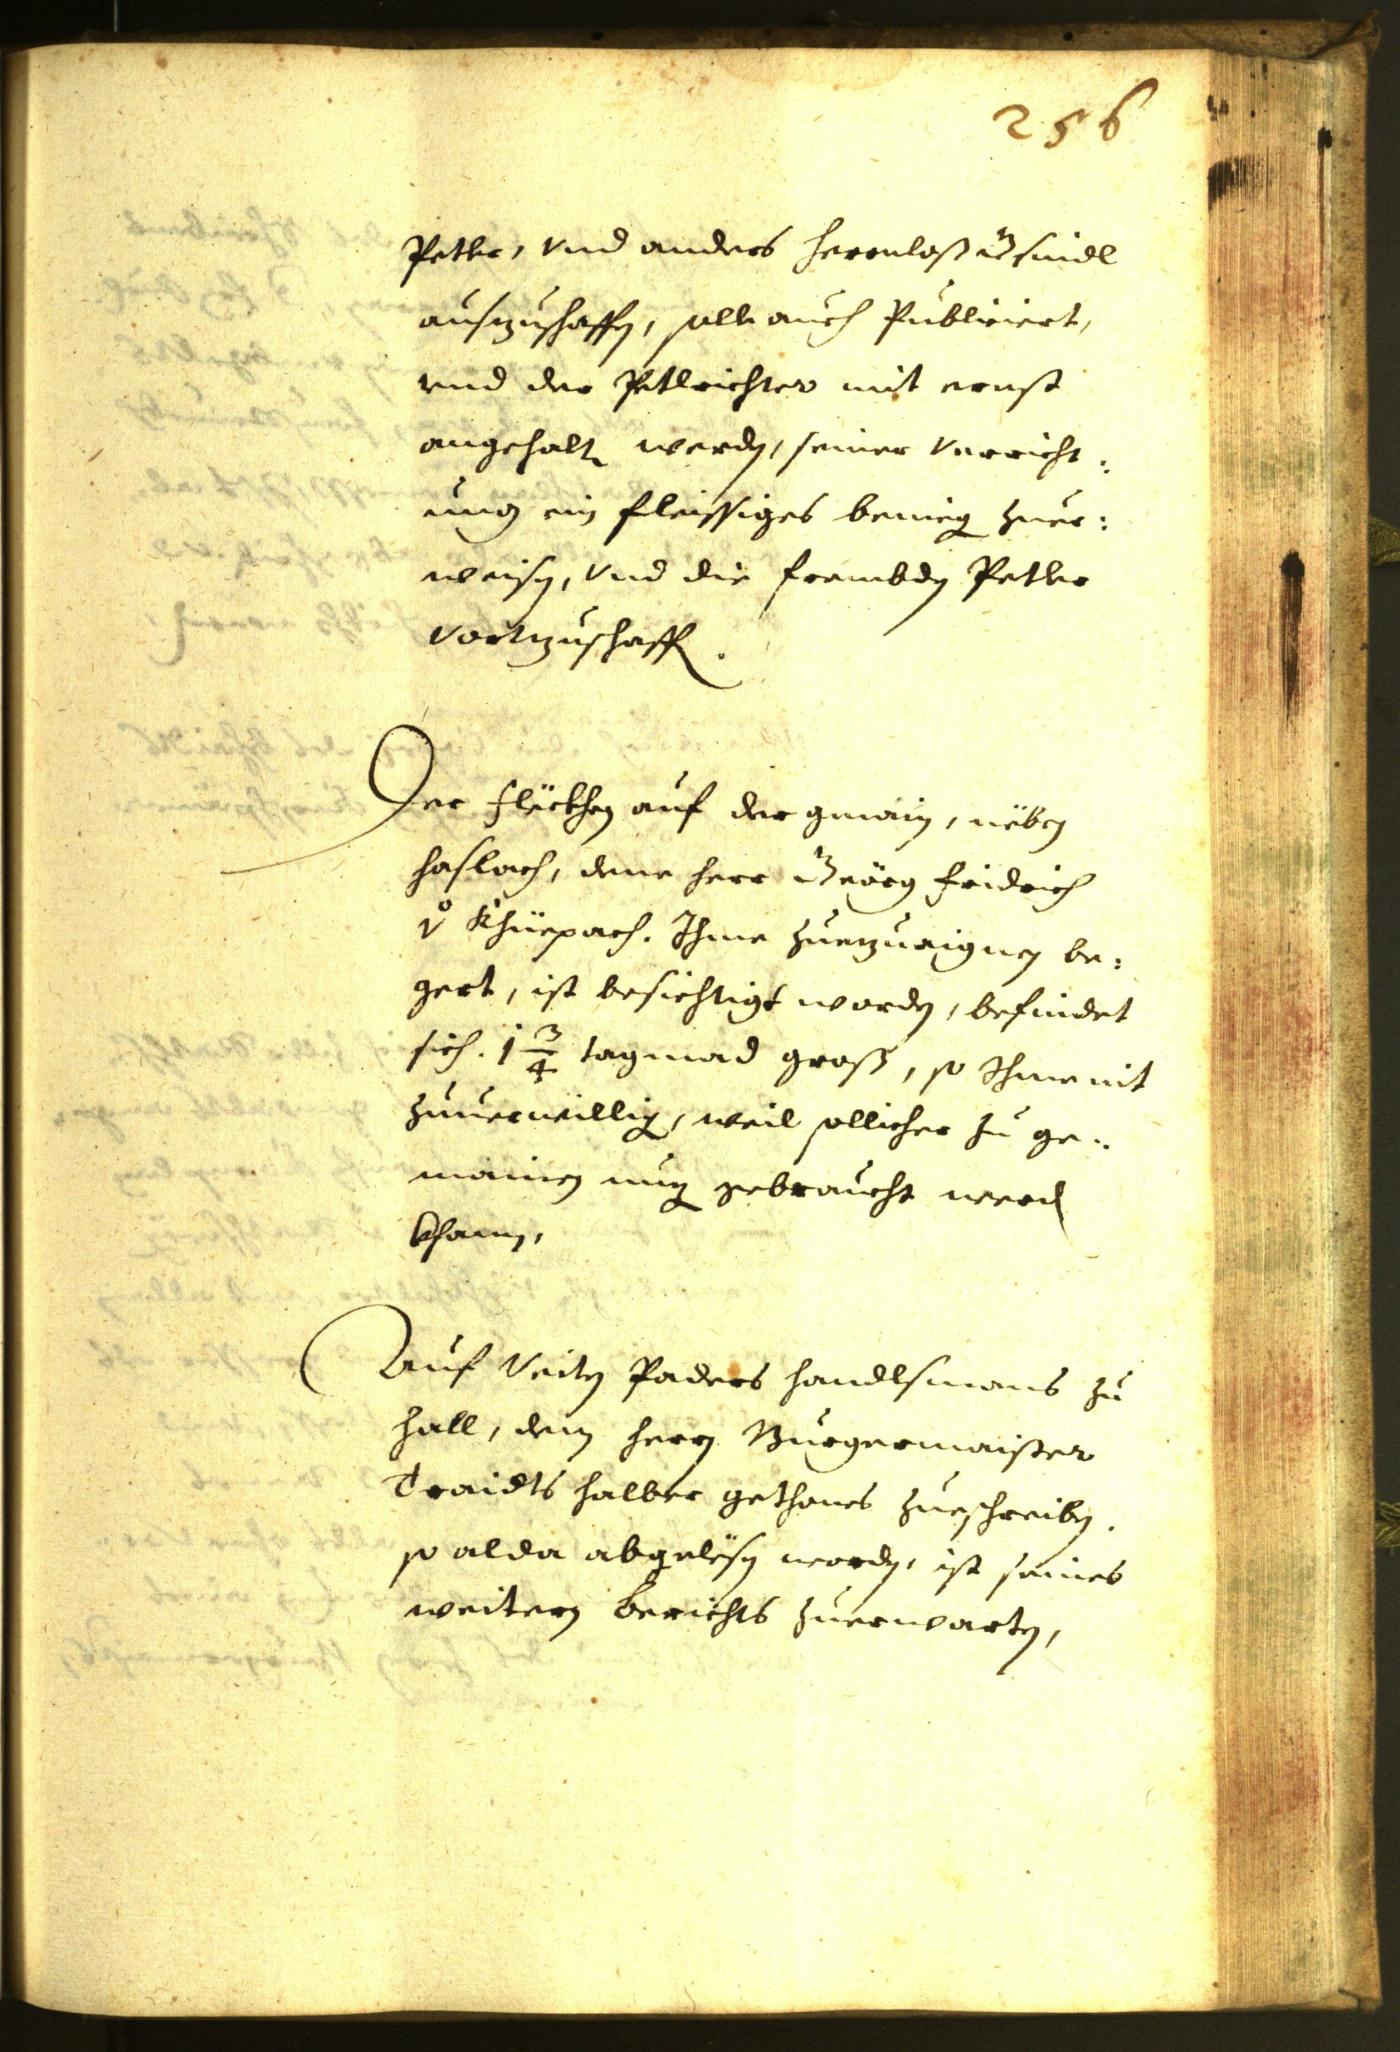 256
Petler, Vnd anders herrnloß Gsindl
auszuschaffen, solle auch Publiciert,
vnd der Petlrichter mit ernst
angehalten werden, seiner Verricht:
ung ein fleissiges beniegen zuer:
weisen, Vnd die frembden Petler
Vortzuschaffen.
Der Fleckhen auf der gmain, neben
Haslach, dene herr Georg Fridrich
v Khüepach. Ihme zuezuaignen be:
gert, ist besichtigt worden, befindet
sich. 1 3/4 tagmad groß, so Ihme nit
zuuerwilligen, weil sollicher zu ge:
mainen nuz gebraucht werden
khann,
Auf Veiten Paders handlsmans zu
Hall, dem herrn Burgermaister
Traidts halber gethones zueschreiben.
so alda abgelesen worden, ist seines
weitern Berichts zuerwarten,